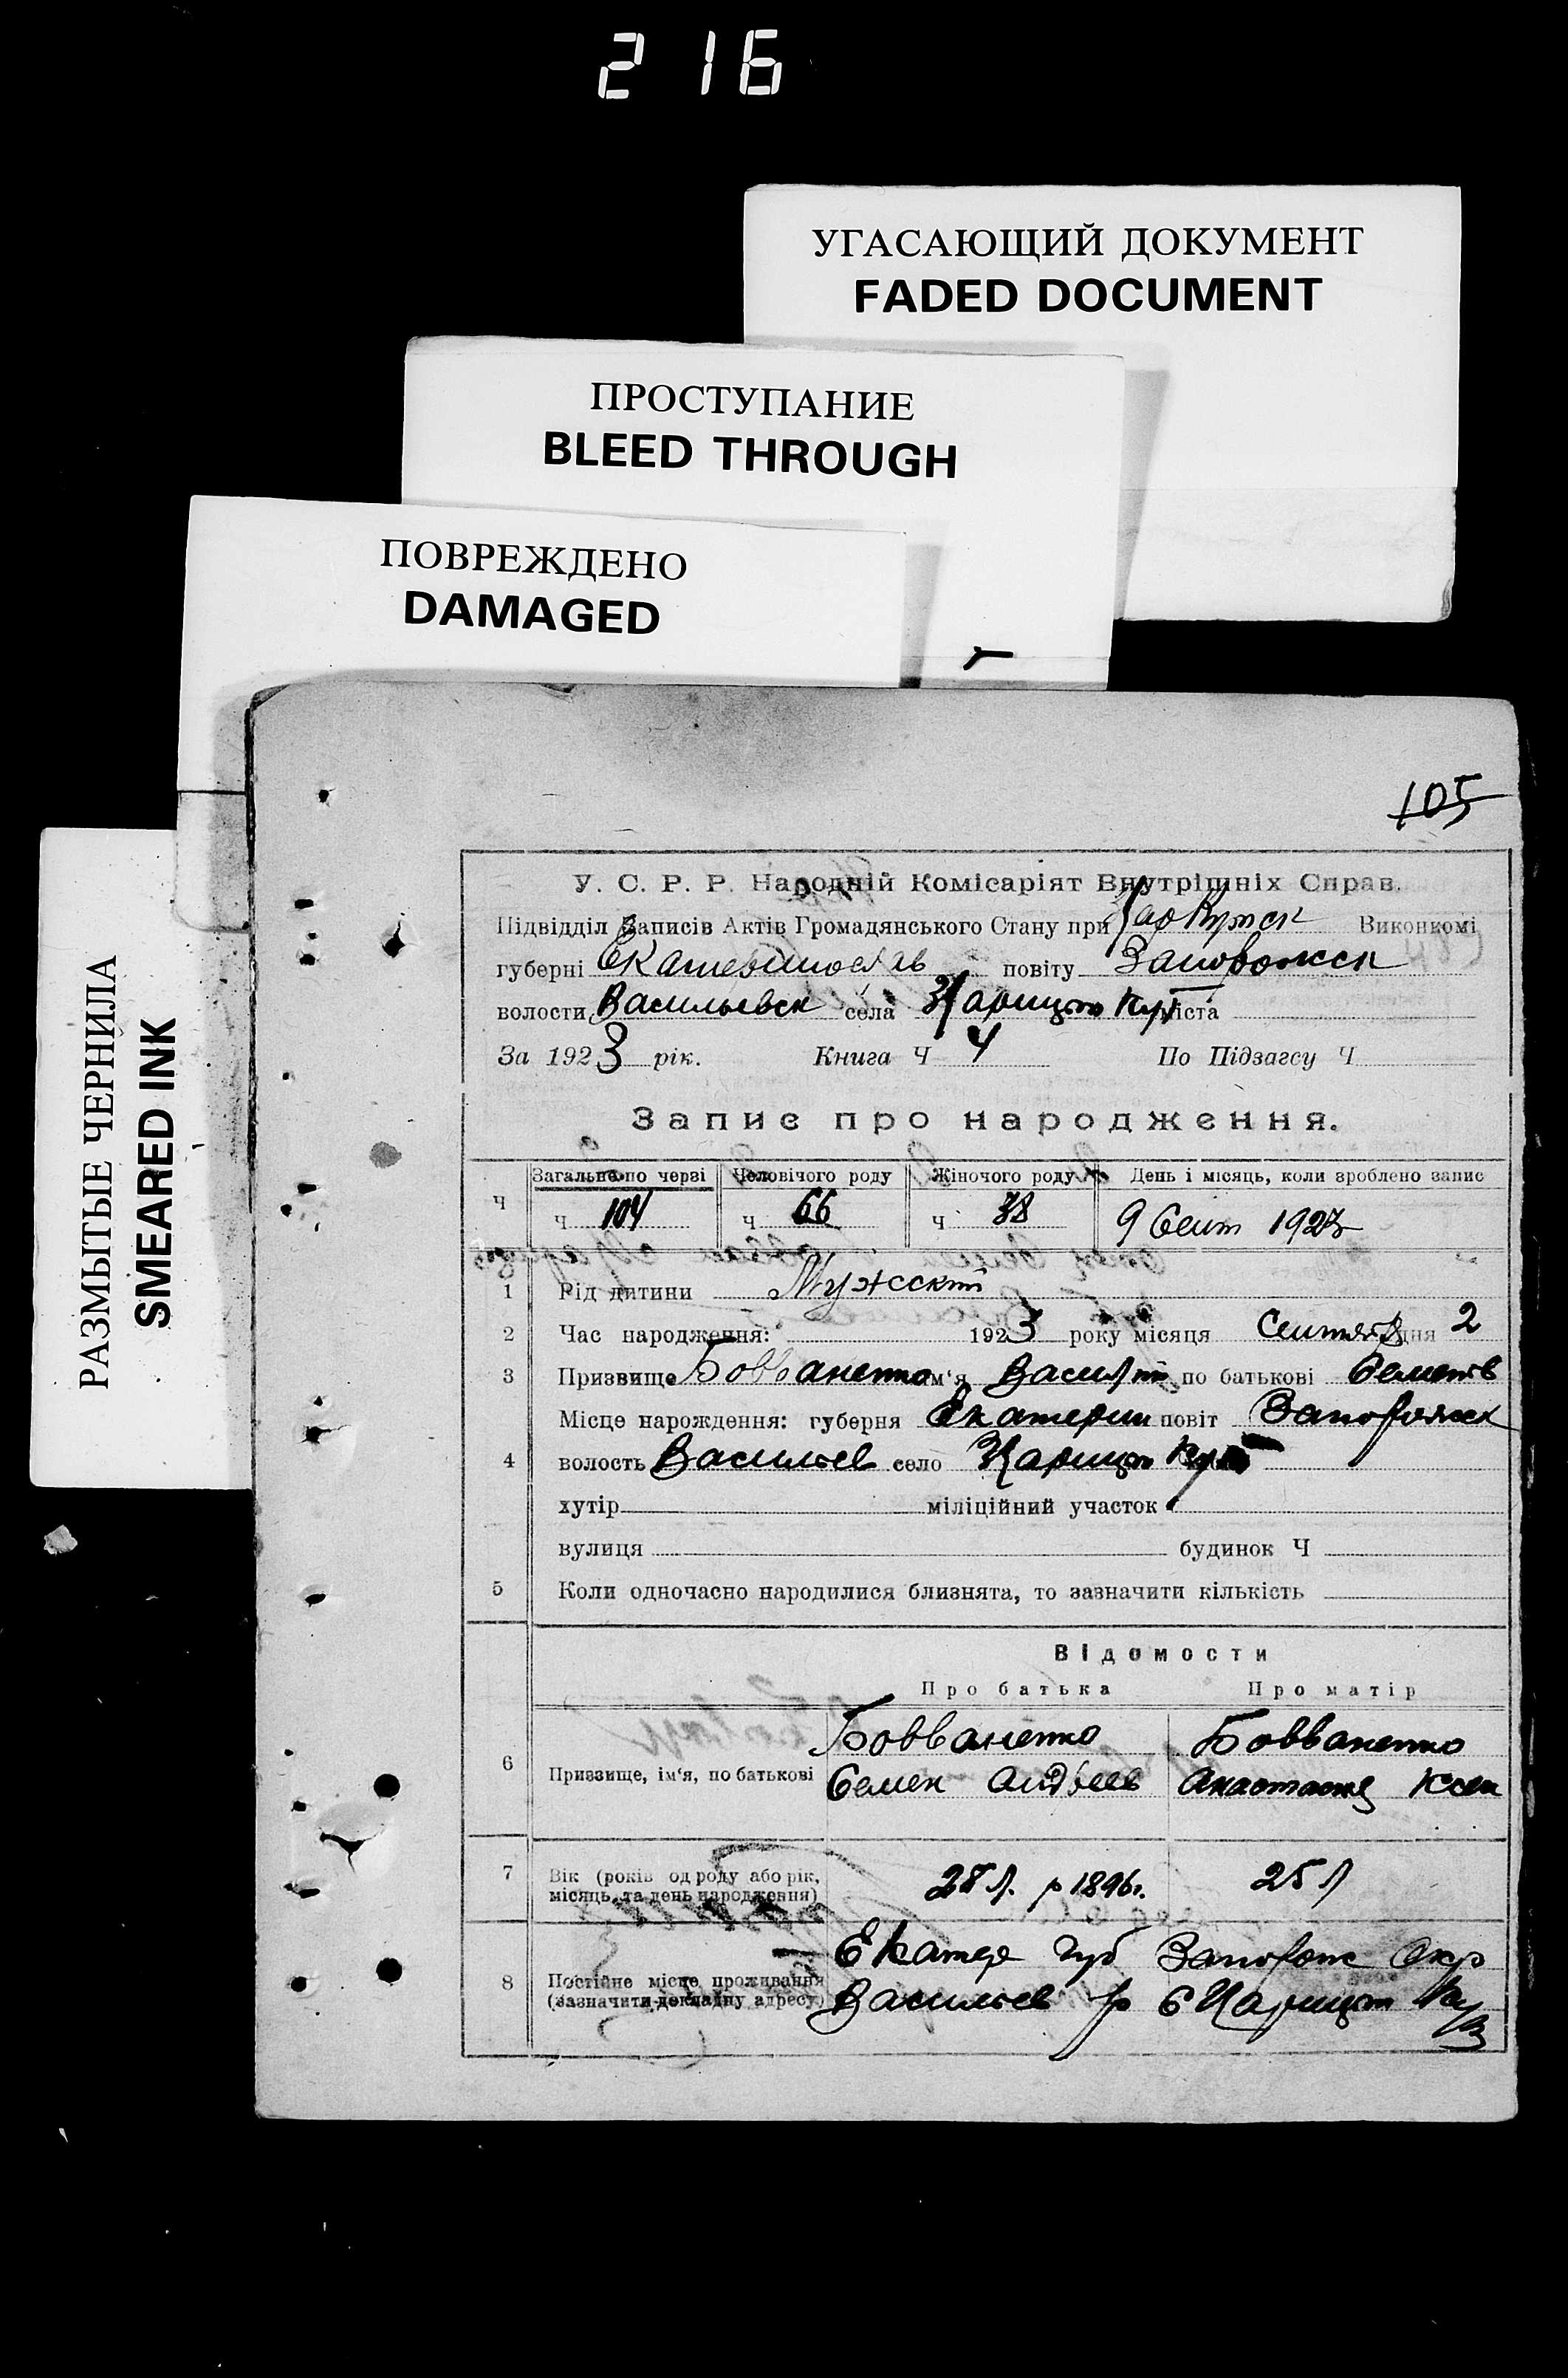 2 16
УГАСАЮЩИЙ ДОКУМЕНТ
FADED DOCUMENT
ПРОСТУПАНИЕ
BLEED THROUGH
ПОВРЕЖДЕНО
DAMAGED
РАЗМЫТЫЕ ЧЕРНИЛА
SMEARED INK
105
У. С. Р. Р. Народній Комісаріят Внутрішніх Справ.
Підвідділ Записів Актів Громадянського Стану при Цар Кутск Виконкомі
губерні Екатеринослав повіту Запорожск
волости Васильевск села Царицын Кут міста
За 1923 рік. Книга Ч 4 По Підзагсу Ч
Запис про народження.
Ч Загальне по черзі Чоловічого роду Жіночого роду День і місяць, коли зроблено запис
Ч 104 Ч 66 Ч 38 9 Сент 1923
1 Рід дитини Мужский
2 Час народження: 1923 року місяця Сентября дня 2
3 Призвище Бовваненко ім'я Василий по батькові Семенов
Місце народження: губерня Екатерин повіт Запорожск
4 волость Васильев село Царицын Кут
хутір міліційний участок
вулиця будинок Ч
5 Коли одночасно народилися близнята, то зазначити кількість
Відомости
Про батька Про матір
Бовваненко Бовваненко
6 Призвище, ім'я, по батькові Семен Андреев Анастасия Ксен
7 Вік (років од роду або рік, місяць та день народження) р 1896г. 25 л
Екатер губ Запорож Окр
8 Постійне місце проживання (зазначити докладну адресу) Васильев р С Царицын Кут